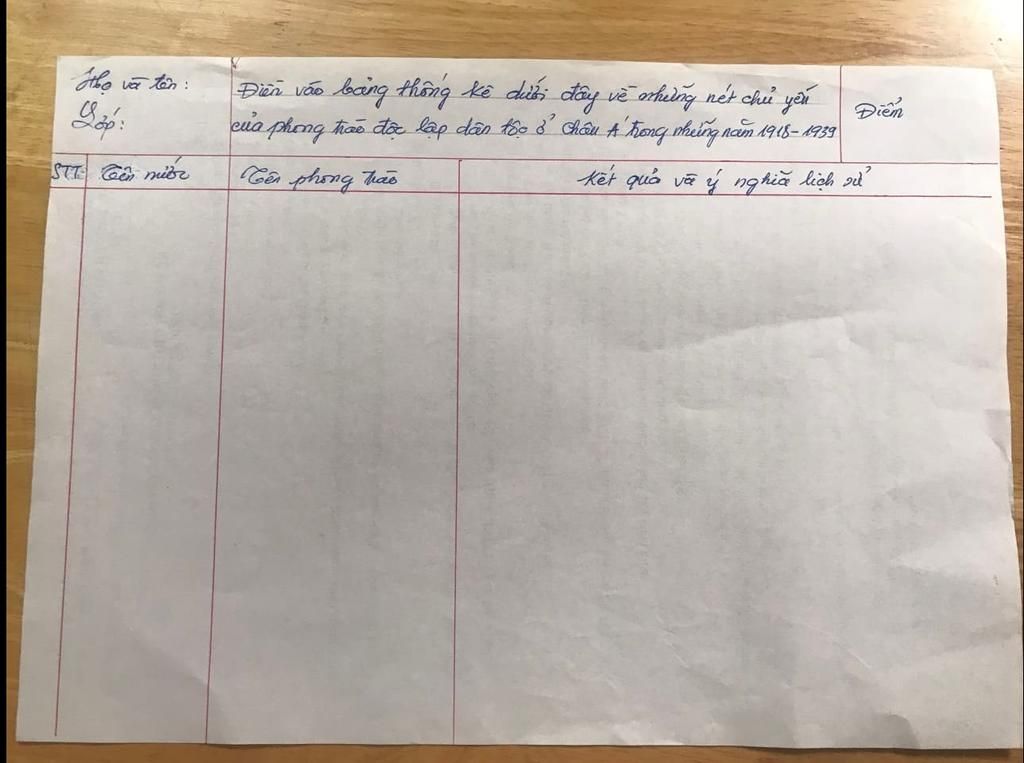 Họ và tên :
Lớp :
Điền vào bảng thống kê dưới đây về những nét chủ yếu
của phong trào độc lập dân tộc ở Châu Á trong những năm 1918 - 1939
Điểm
STT Tên nước Tên phong trào Kết quả và ý nghĩa lịch sử